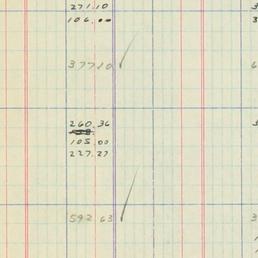 271.10
106.00
377.10
260.36
105.00
227.27
592.63